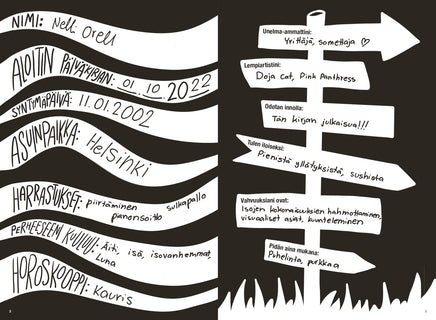 NIMI: Nelli Orell
ALOITIN PÄIVÄKIRJAN: 01.10.2022
SYNTYMÄPÄIVÄ: 11.01.2002
ASUINPAIKKA: Helsinki
HARRASTUKSET: piirtäminen sulkapallo
panonsoitto
PERHEESEENI KUULUU: Äiti, isä, isovanhemmat
Luna
HOROSKOOPPI: Kauris
Unelma-ammattini:
Yrittäjä, somettaja ♡
Lempiartistini:
Doja Cat, Pink Panthress
Odotan innolla:
Tän kirjan julkaisua!!!
Tulen iloiseksi:
Pienistä yllätyksistä, sushista
Vahvuuksiani ovat:
Isojen kokonaisuuksien hahmottaminen,
visuaaliset asiat, kuunteleminen
Pidän aina mukana:
Puhelinta, purkkaa